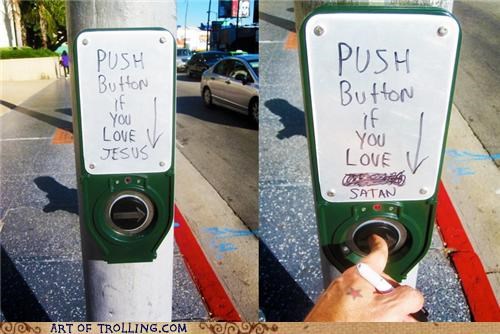 PUSH
Button
if
YOU
LOVE
JESUS
PUSH
Button
if
YOU
LOVE
SATAN
ART OF TROLLING.COM